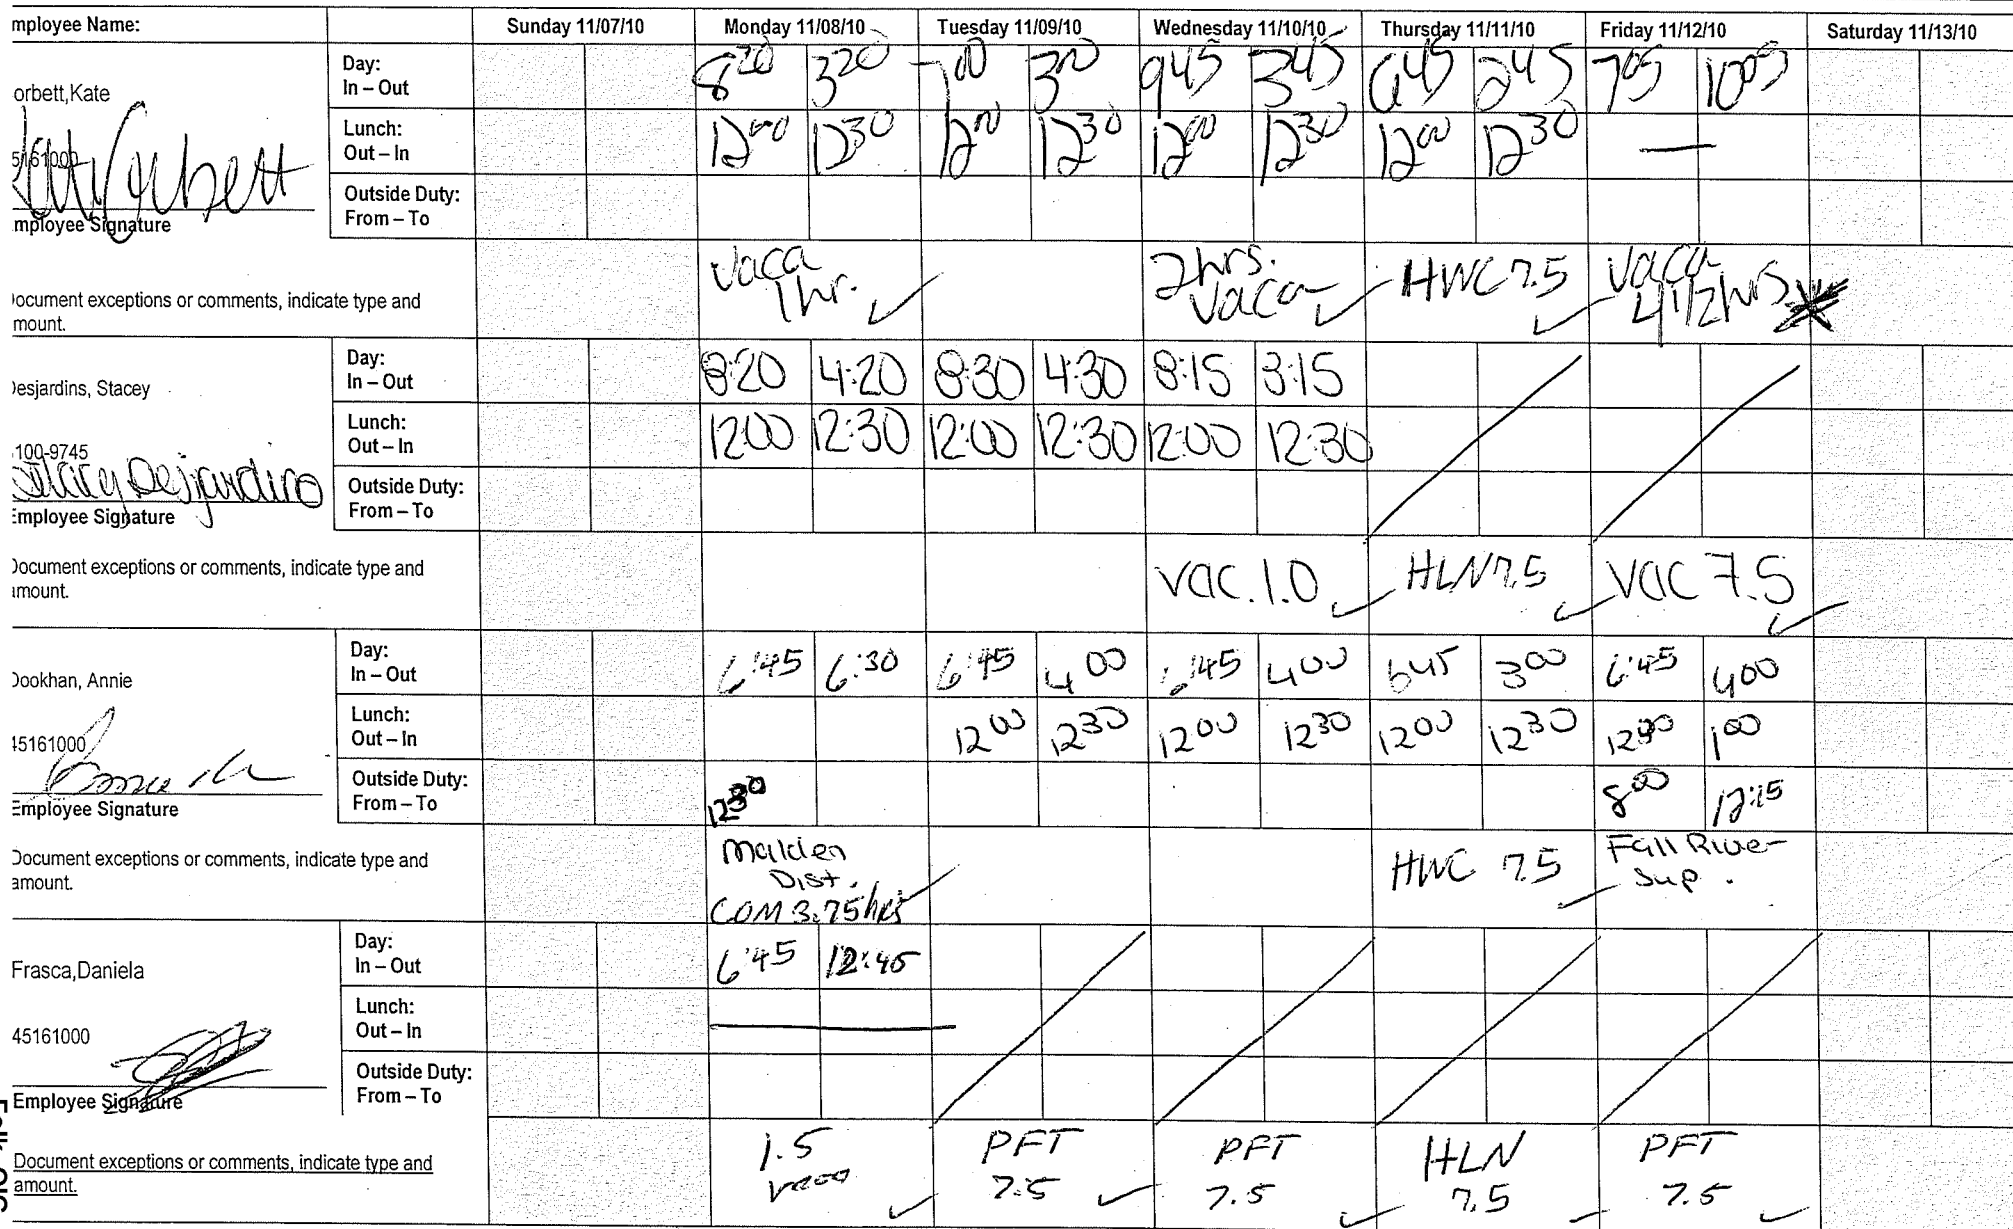 mployee Name: Sunday 11/07/10 Monday 11/08/10 Tuesday 11/09/10 Wednesday 11/10/10 Thursday 11/11/10 Friday 11/12/10 Saturday 11/13/10
orbett,Kate
5161000
Kate Corbett
mployee Signature
Day: In – Out 8 20 3 20 7 00 3 00 9 45 3 45 6 45 2 45 7 05 10 05
Lunch: Out – In 12 00 12 30 12 00 12 30 12 00 12 30 12 00 12 30 —
Outside Duty: From – To
ocument exceptions or comments, indicate type and
mount.
Vaca 1hr. ✓ 2hrs. Vaca ✓ HWC 7.5 ✓ Vaca 4 1/2 hrs
esjardins, Stacey
100-9745
Stacey Desjardins
Employee Signature
Day: In – Out 8:20 4:20 8:30 4:30 8:15 3:15
Lunch: Out – In 12:00 12:30 12:00 12:30 12:00 12:30
Outside Duty: From – To
Document exceptions or comments, indicate type and
mount.
Vac. 1.0 ✓ HLN 7.5 ✓ Vac 7.5 ✓
Dookhan, Annie
45161000
Employee Signature
Day: In – Out 6:45 6:30 6:45 4 00 6:45 4 00 6 45 3 00 6:45 4 00
Lunch: Out – In 12 00 12 30 12 00 12 30 12 00 12 30 1 00
Outside Duty: From – To 12 30 8 00 12:15
Document exceptions or comments, indicate type and
amount.
Malden Dist. COM 3.75 hrs ✓ HWC 7.5 ✓ Fall River Sup.
Frasca,Daniela
45161000
Employee Signature
Day: In – Out 6:45 12:45
Lunch: Out – In
Outside Duty: From – To
Document exceptions or comments, indicate type and
amount.
1.5 vaca ✓ PFT 7.5 ✓ PFT 7.5 ✓ HLN 7.5 PFT 7.5 ✓